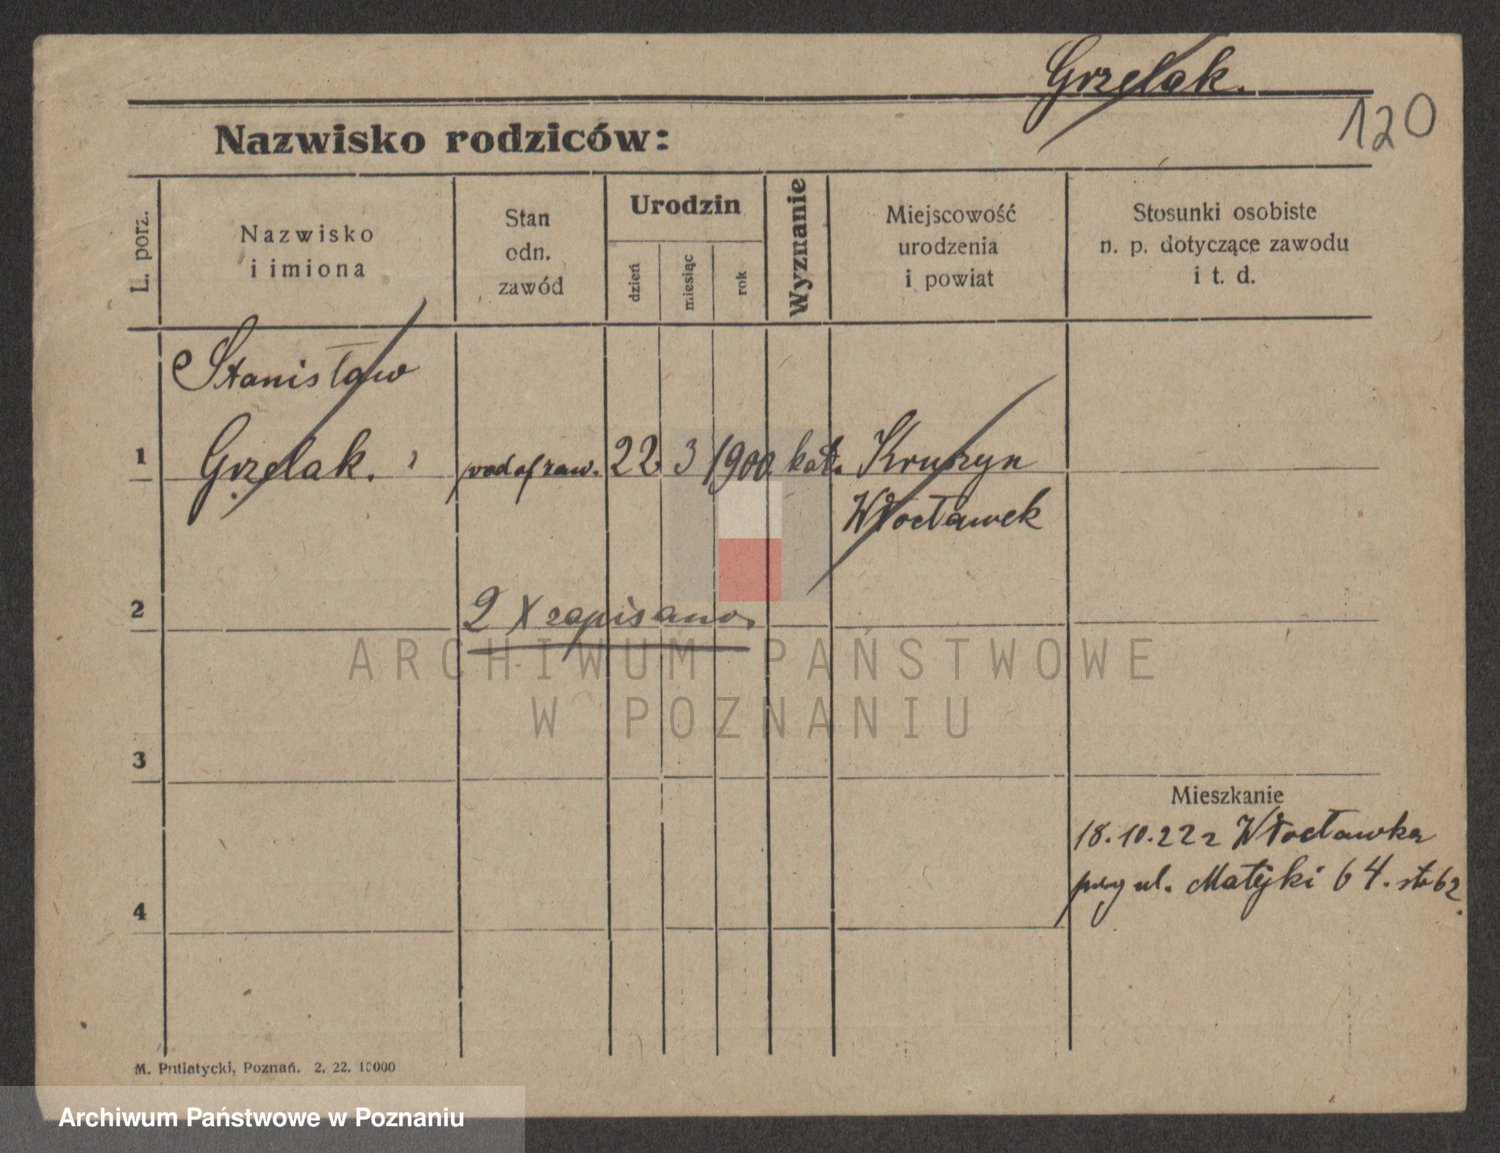 Grzelak.
120
Nazwisko rodziców:
L. porz.
Nazwisko
i imiona
Stan
odn.
zawód
Urodzin
dzień
miesiąc
rok
Wyznanie
Miejscowość
urodzenia
i powiat
Stosunki osobiste
n. p. dotyczące zawodu
i t. d.
Stanisław
1 Grzelak. 22 3 1900 kat. Kruszyn
Włocławek
2 2 X zapisano.
3
Mieszkanie
18.10.22 z Włocławka
przy ul. Matejki 64. str 62.
4
M. Putiatycki, Poznań. 2. 22. 10000
ARCHIWUM PAŃSTWOWE
W POZNANIU
Archiwum Państwowe w Poznaniu